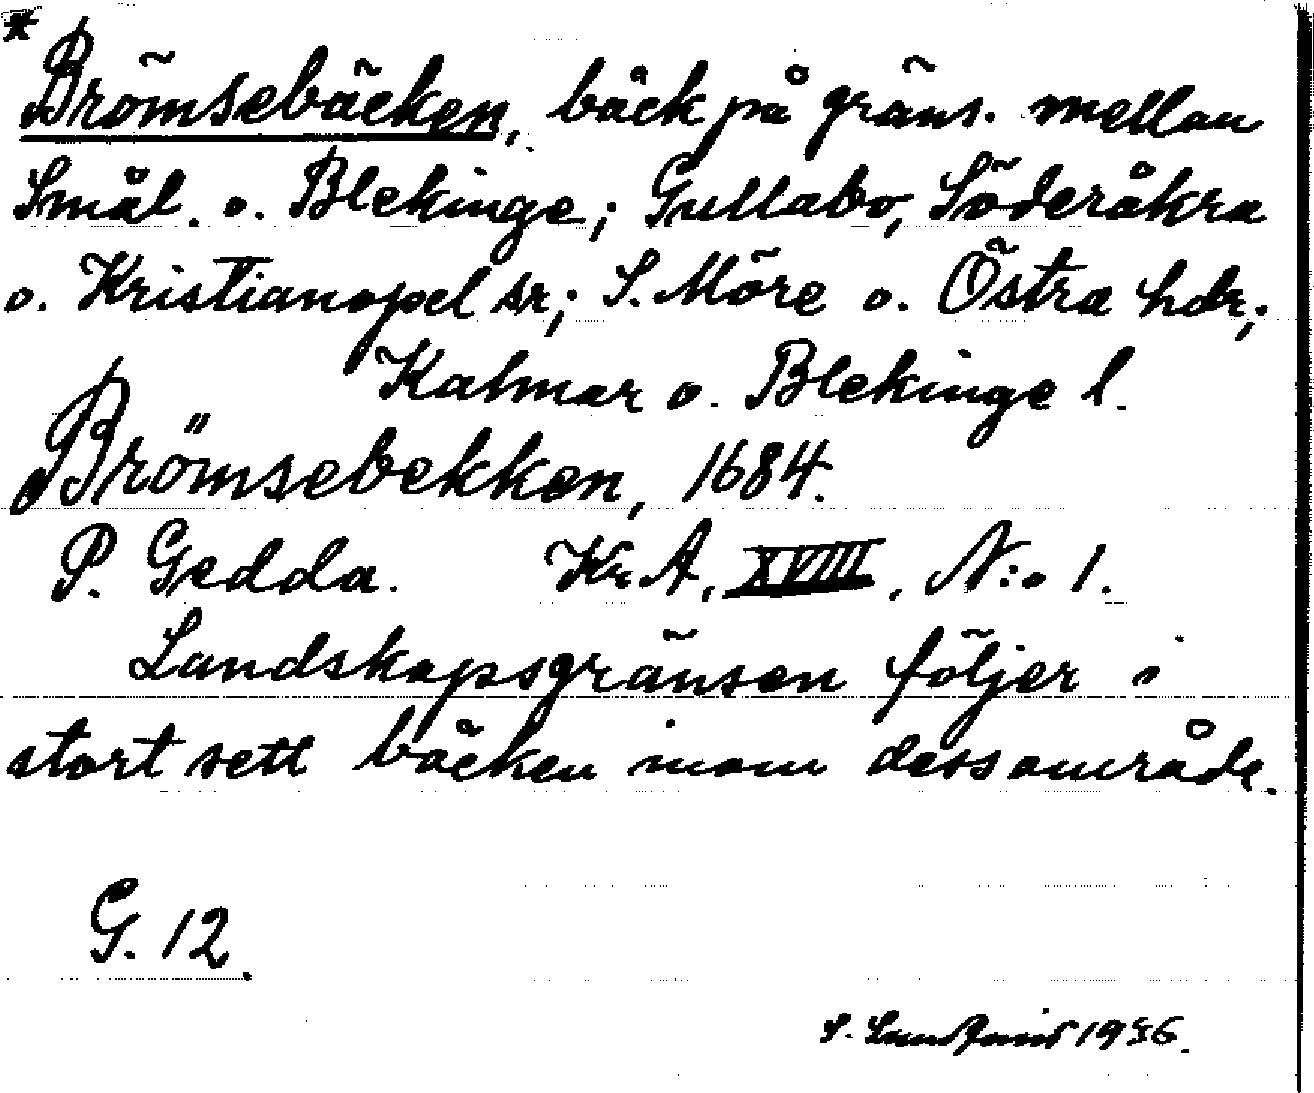 * Brömsebäcken, bäck på gräns. mellan
Smål. o. Blekinge; Gullabo, Söderåkra
o. Kristianopel sr; S. Möre o. Östra hdr;
Kalmar o. Blekinge l.
Brömsebekken, 1684.
P. Gedda. Kr. A, XVIII, N:o 1.
Landskapsgränsen följer i
stort sett bäcken inom dess område.
G. 12.
S. 1956.